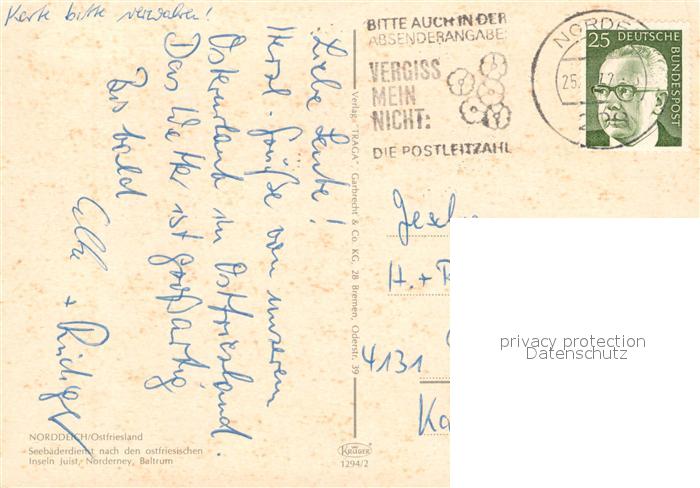 Karte bitte verwahren!
Liebe Leute!
Herzl. Grüße von unserem
Osterurlaub in Ostfriesland.
Das Wetter ist großartig
Bis bald
Elke + Rüdiger
NORDDEICH/Ostfriesland
Seebäderdienst nach den ostfriesischen
Inseln Juist, Norderney, Baltrum
Verlag "TRAGA" Garbrecht & Co. KG, 28 Bremen, Oderstr. 39
KRÜGER
1294/2
BITTE AUCH IN DER
ABSENDERANGABE:
VERGISS
MEIN
NICHT:
DIE POSTLEITZAHL
NORDE
25.
25 DEUTSCHE
BUNDESPOST
H. +
4131
privacy protection
Datenschutz